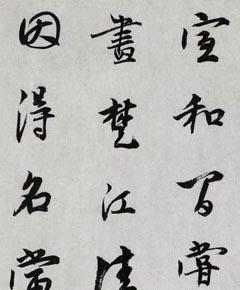 宣和間嘗
畫楚江清
因得名